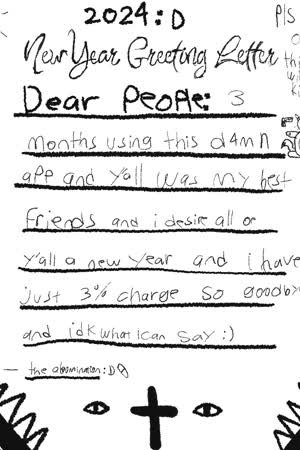 2024:D
PlS
New Year Greeting Letter
Dear People: 3
months using this d4mn
app and y'all was my best
friends and i desire all of
y'all a new year and i have
just 3% charge so goodby
and idk what I can say :)
— the abomination :D